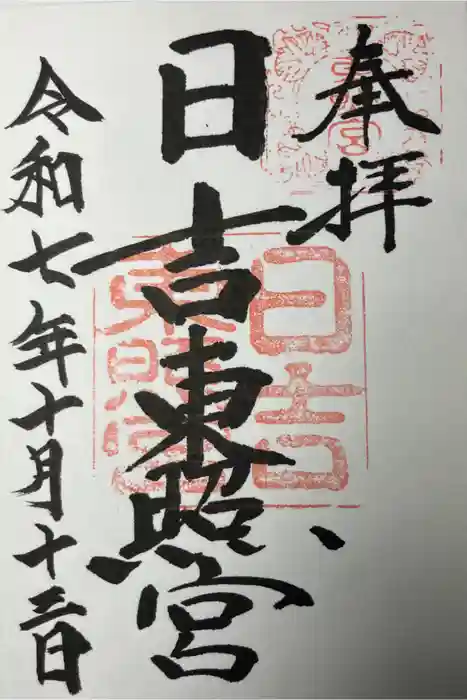 奉拝
日吉東照宮
令和七年十月十三日
日吉
東照宮